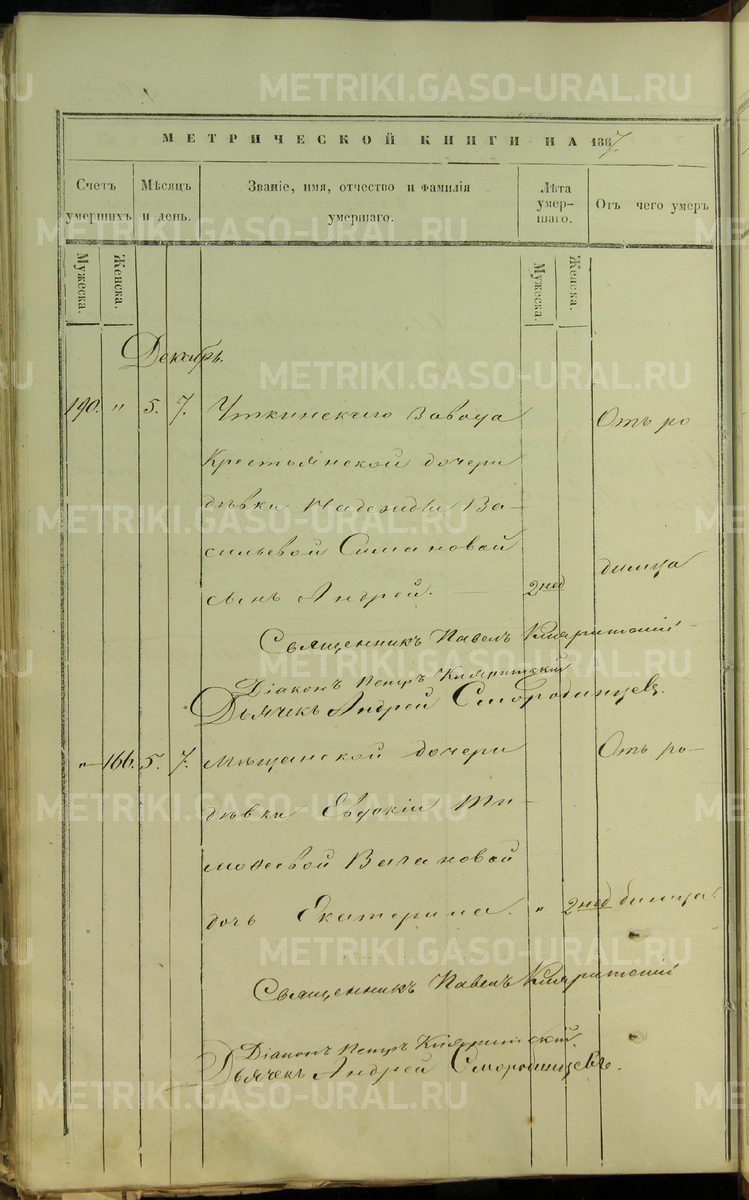 METRIKI.GASO-URAL.RU
МЕТРИЧЕСКОЙ КНИГИ НА 1867
Счетъ умершихъ
Мѣсяцъ и день.
Званіе, имя, отчество и фамилія умершаго.
Лѣта умершаго.
Отъ чего умеръ
Мужеска.
Женска.
Мужеска.
Женска.
Декабрь.
190. " 5. 7. Уткинскаго Завода Отъ ро
Крестьянской дочери
дѣвки Надежды Ва-
сильевой Симановой
сынъ Андрей. 2 нед димца
Священникъ Павелъ
Діаконъ Петръ
Дьячекъ Андрей Смородинцевъ.
" 166. 5. 7. Мѣщанской дочери Отъ ро-
дѣвки Евдокіи Ти-
моѳеевой Вагановой
дочь Екатерина. " 2 нед димца.
Священникъ Павелъ
Діаконъ Петръ
Дьячекъ Андрей Смородинцевъ.